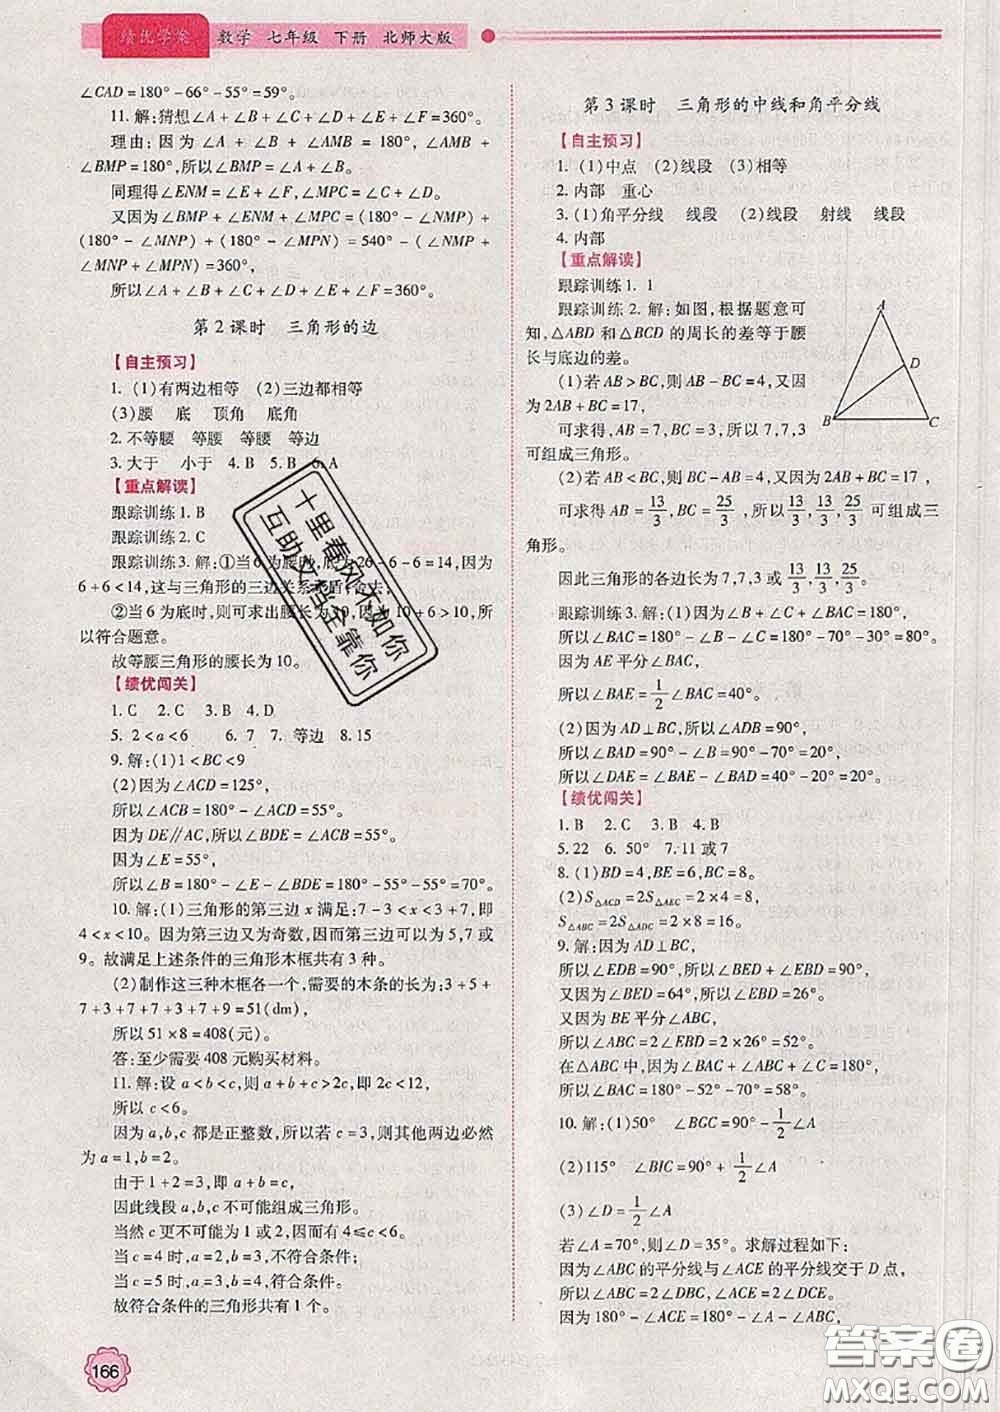 绩优学案 数学 七年级 下册 北师大版
∠CAD=180°-66°-55°=59°。
11.解:猜想∠A+∠B+∠C+∠D+∠E+∠F=360°。
理由:因为∠A+∠B+∠AMB=180°,∠AMB+
∠BMP=180°,所以∠BMP=∠A+∠B。
同理得∠ENM=∠E+∠F,∠MPC=∠C+∠D。
又因为∠BMP+∠ENM+∠MPC=(180°-∠NMP)+
(180°-∠MNP)+(180°-∠MPN)=540°-(∠NMP+
∠MNP+∠MPN)=360°,
所以∠A+∠B+∠C+∠D+∠E+∠F=360°。
第2课时 三角形的边
【自主预习】
1.(1)有两边相等 (2)三边都相等
(3)腰 底 顶角 底角
2.不等腰 等腰 等腰 等边
3.大于 小于 4.B 5.B 6.A
【重点解读】
跟踪训练1.B
跟踪训练2.C
跟踪训练3.解:①当6为腰时,底为26-6-6=14,因为
6+6<14,这与三角形的三边关系矛盾,舍去;
②当6为底时,则可求出腰长为10,因为10+6>10,所
以符合题意。
故等腰三角形的腰长为10。
【绩优闯关】
1.C 2.C 3.B 4.D
5.2<a<6 6.7 7.等边 8.15
9.解:(1)1<BC<9
(2)因为∠ACD=125°,
所以∠ACB=180°-∠ACD=55°。
因为DE∥AC,所以∠BDE=∠ACB=55°。
因为∠E=55°,
所以∠B=180°-∠E-∠BDE=180°-55°-55°=70°。
10.解:(1)三角形的第三边x满足:7-3<x<3+7,即
4<x<10。因为第三边又为奇数,因而第三边可以为5,7或
9。故满足上述条件的三角形木框共有3种。
(2)制作这三种木框各一个,需要的木条的长为:3+5+
7+3+7+7+3+7+9=51(dm),
所以51×8=408(元)。
答:至少需要408元购买材料。
11.解:设a<b<c,则a+b+c>2c,即2c<12,
所以c<6。
因为a,b,c都是正整数,所以若c=3,则其他两边必然
为a=1,b=2。
由于1+2=3,即a+b=c,
因此线段a,b,c不可能组成三角形。
当然c更不可能为1或2,因而有4≤c<6。
当c=4时,a=2,b=3,不符合条件;
当c=5时,a=3,b=4,符合条件。
故符合条件的三角形共有1个。
166
第3课时 三角形的中线和角平分线
【自主预习】
1.(1)中点 (2)线段 (3)相等
2.内部 重心
3.(1)角平分线 线段 (2)线段 射线 线段
4.内部
【重点解读】
跟踪训练1.1
跟踪训练2.解:如图,根据题意可
知,△ABD和△BCD的周长的差等于腰
长与底边的差。
(1)若AB>BC,则AB-BC=4,又因
为2AB+BC=17,
可求得,AB=7,BC=3,所以7,7,3
可组成三角形。
A
D
B
C
(2)若AB<BC,则BC-AB=4,又因为2AB+BC=17,
可求得AB=13/3,BC=25/3,所以13/3,13/3,25/3可组成三
角形。
因此三角形的各边长为7,7,3或13/3,13/3,25/3。
跟踪训练3.解:(1)因为∠B+∠C+∠BAC=180°,
所以∠BAC=180°-∠B-∠C=180°-70°-30°=80°。
因为AE平分∠BAC,
所以∠BAE=1/2∠BAC=40°。
(2)因为AD⊥BC,所以∠ADB=90°,
所以∠BAD=90°-∠B=90°-70°=20°,
所以∠DAE=∠BAE-∠BAD=40°-20°=20°。
【绩优闯关】
1.B 2.C 3.B 4.B
5.22 6.50° 7.11或7
8.(1)BD=4,BE=6,BC=8。
(2)S△ACD=2S△AEC=2×4=8,
S△ABC=2S△ADC=2×8=16。
9.解:因为AD⊥BC,
所以∠EDB=90°,所以∠BED+∠EBD=90°。
又因为∠BED=64°,所以∠EBD=26°。
又因为BE平分∠ABC,
所以∠ABC=2∠EBD=2×26°=52°。
在△ABC中,因为∠BAC+∠ABC+∠C=180°,
所以∠BAC=180°-52°-70°=58°。
10.解:(1)50° ∠BGC=90°-1/2∠A
(2)115° ∠BIC=90°+1/2∠A
(3)∠D=1/2∠A
若∠A=70°,则∠D=35°。求解过程如下:
因为∠ABC的平分线与∠ACE的平分线交于D点,
所以∠ABC=2∠DBC,∠ACE=2∠DCE。
因为180°-∠ACE=180°-∠A-∠ABC,
十里春风不如你
互助文档全靠你
答案圈
MXQE.COM